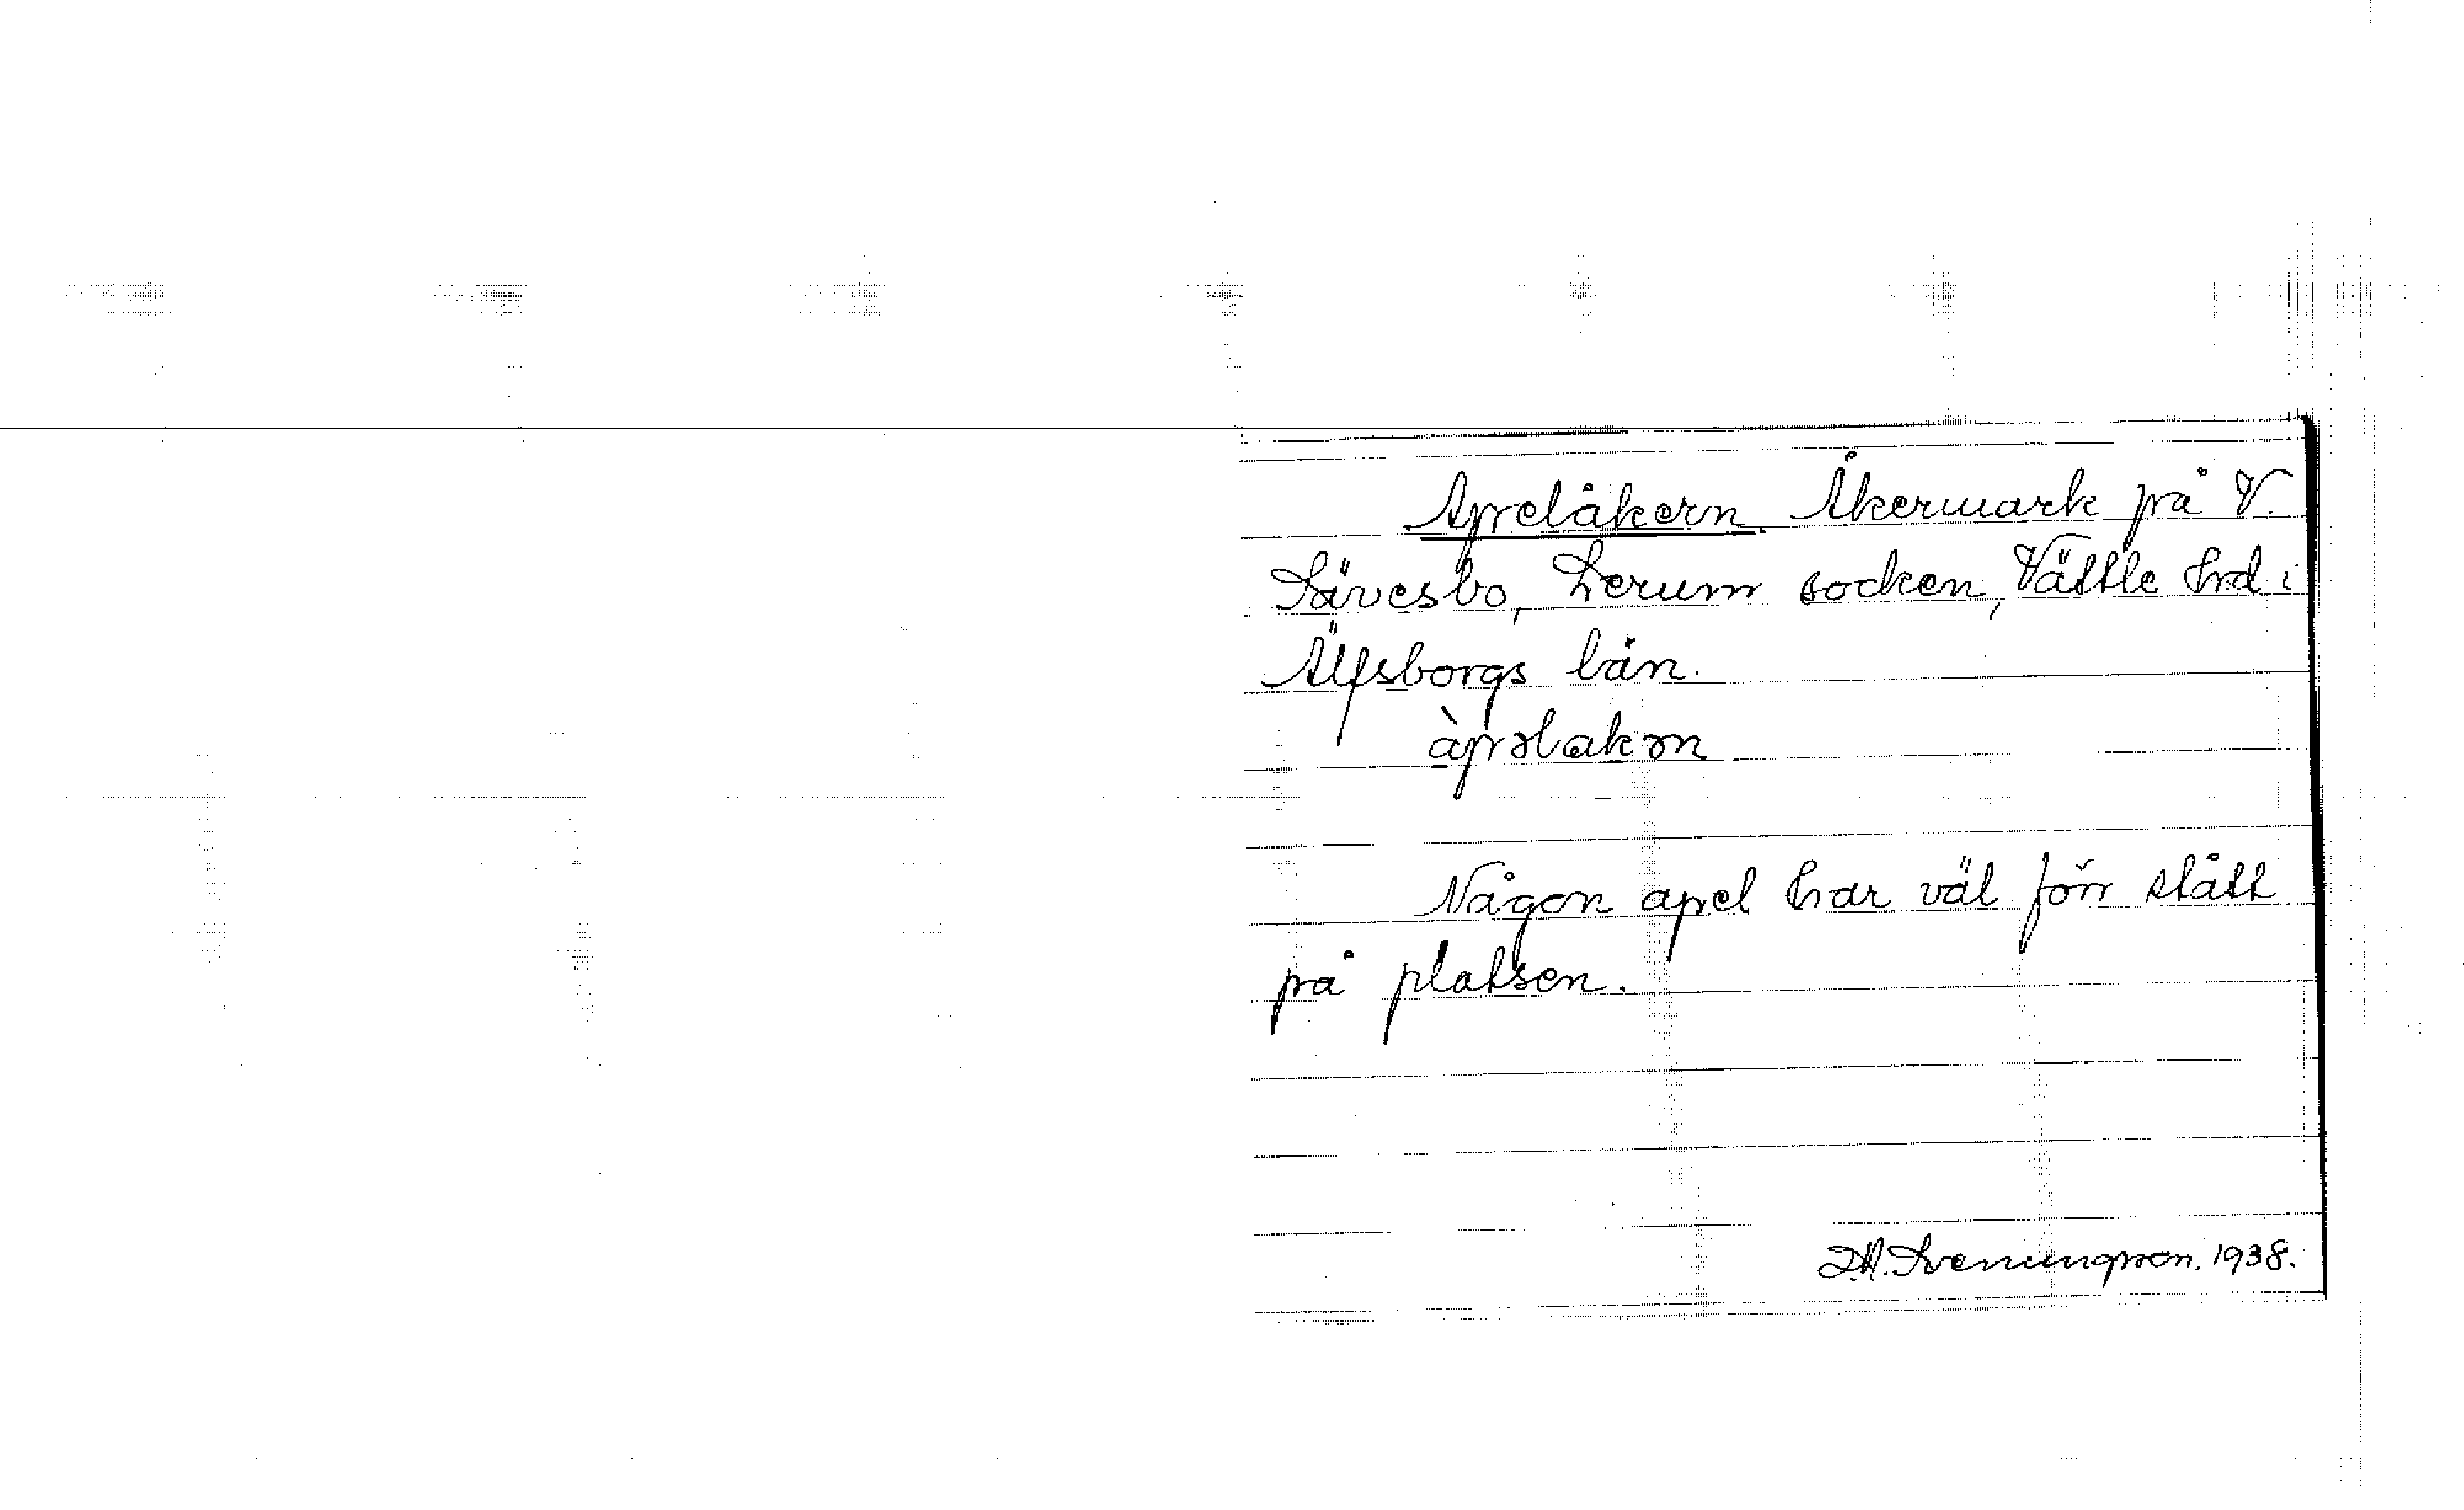 Apelåkern. Åkermark på V.
Sävesbo, Lerum socken, Vättle hrd i
Älfsborgs län.
àpəlakən
Någon apel har väl förr stått
på platsen.
Svenungsson. 1938.